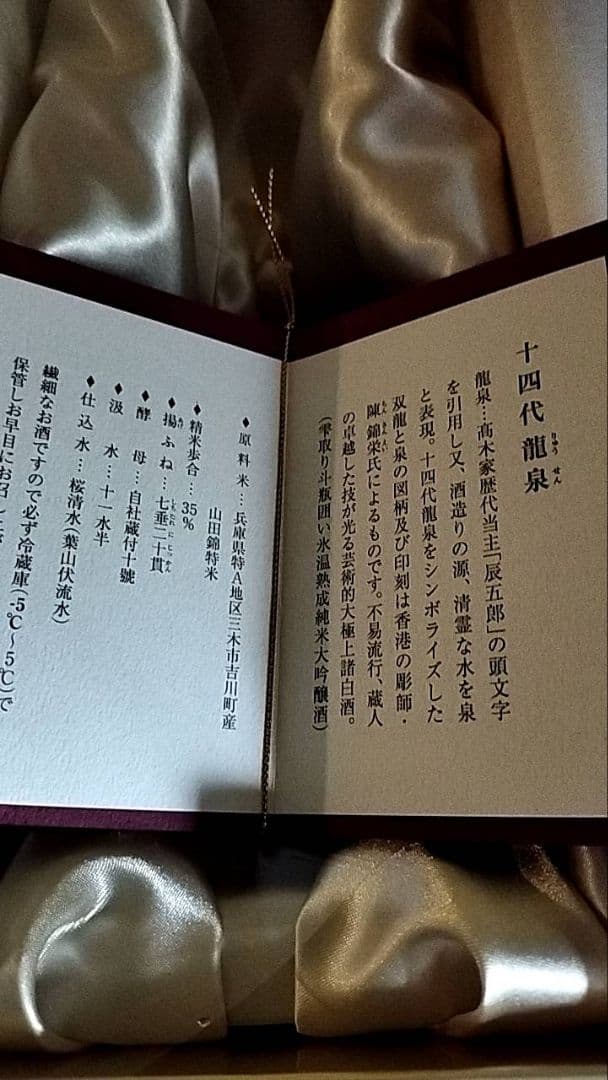 十四代龍泉
りゅう せん
龍泉…髙木家歴代当主「辰五郎」の頭文字
を引用し又、酒造りの源、清霊な水を泉
と表現。十四代龍泉をシンボライズした
双龍と泉の図柄及び印刻は香港の彫師・
陳錦栄氏によるものです。不易流行、蔵人
の卓越した技が光る芸術的大極上諸白酒。
(雫取り斗瓶囲い氷温熟成純米大吟醸酒)
◆原料米…兵庫県特A地区三木市吉川町産
山田錦特米
◆精米歩合…35%
◆揚ふね…七垂二十貫
◆酵母…自社蔵付十號
◆汲水…十一水半
◆仕込水…桜清水(葉山伏流水)
繊細なお酒ですので必ず冷蔵庫(-5℃〜5℃)で
保管しお早目にお召し